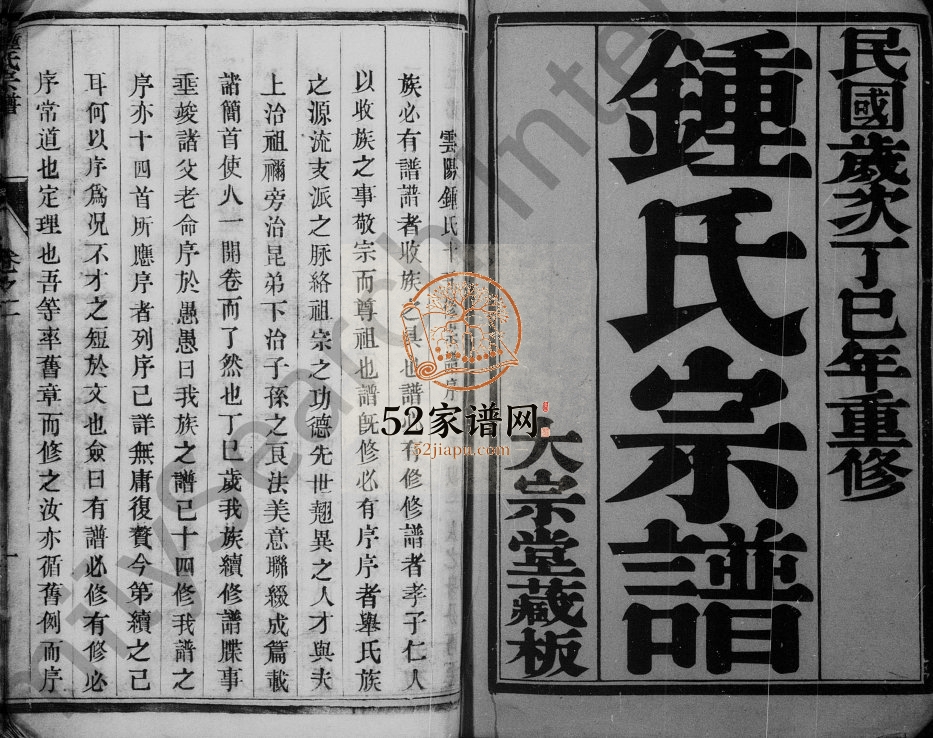 民國歲次丁巳年重修
鍾氏宗譜
大宗堂藏板
雲陽鍾氏十 修宗譜序
族必有譜譜者收族之具也譜 有修修譜者孝子仁人
以收族之事敬宗而尊祖也譜旣修必有序序者舉氏族
之源流支派之脉絡祖宗之功德先世翹異之人才與夫
上治祖禰旁治昆弟下治子孫之良法美意聯綴成篇載
諸簡首使人一開卷而了然也丁巳歲我族續修譜牒事
垂竣諸父老命序於愚愚曰我族之譜已十四修我譜之
序亦十四首所應序者列序已詳無庸復贅今第續之已
耳何以序爲况不才之短於文也僉曰有譜必修有修必
序常道也定理也吾等率舊章而修之汝亦循舊例而序
氏宗譜
卷之一
一
52家谱网
52jiapu.com
FamilySearch Intern